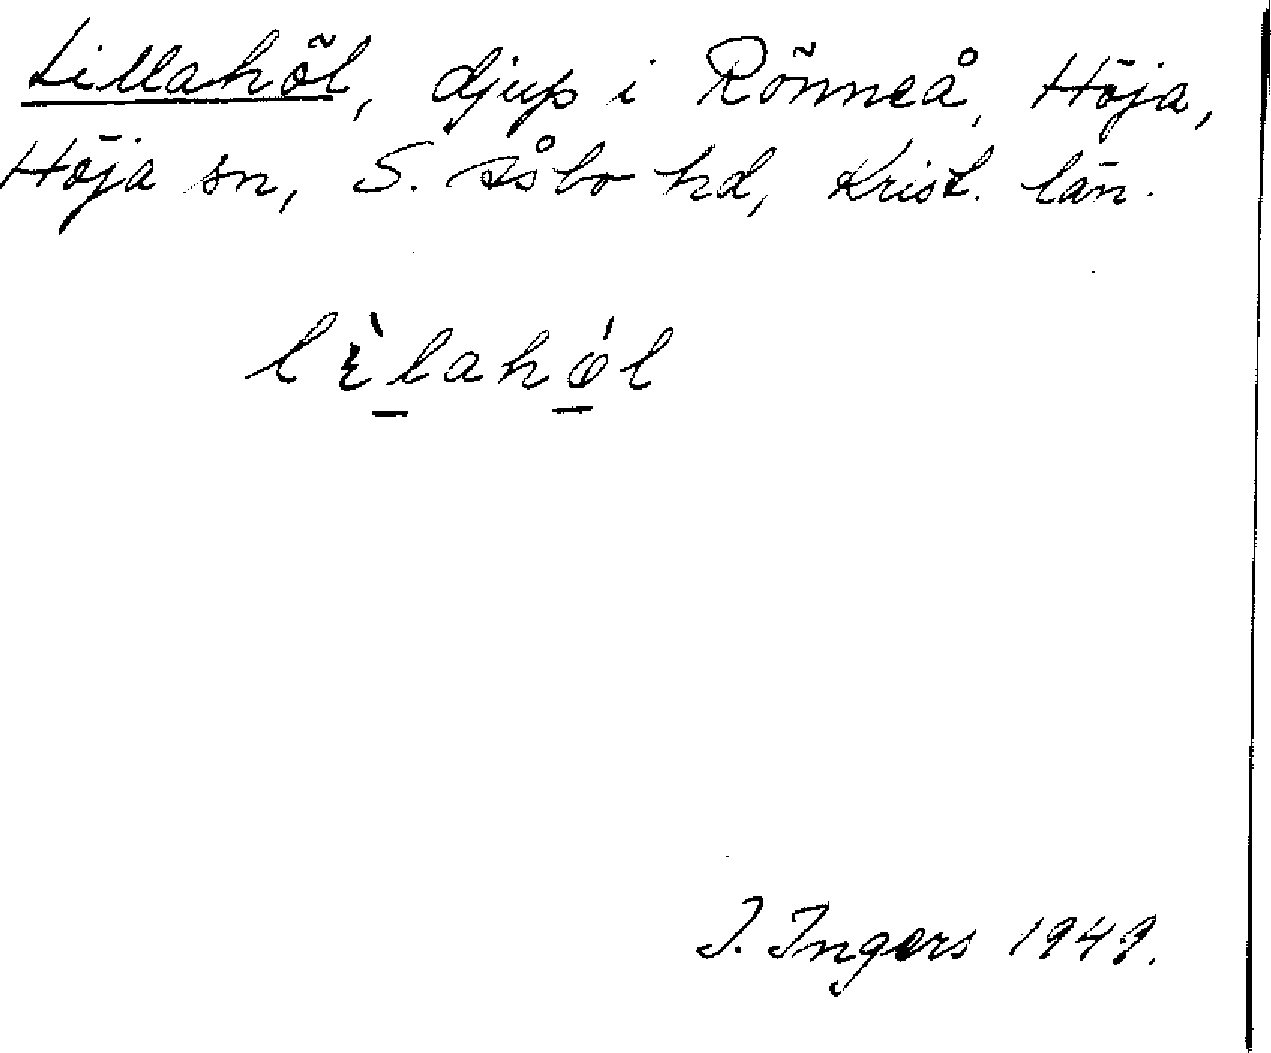 Lillahöl, djup i Rönneå, Höja,
Höja sn, S. Åsbo hd, Krist. län.
lὲlahǿl
I. Ingers 1949.